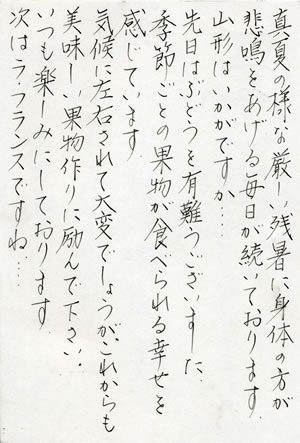 真夏の様な厳しい残暑に身体の方が
悲鳴をあげる毎日が続いております.
山形はいかがですか…
先日はぶどうを有難うございました.
季節ごとの果物が食べられる幸せを
感じています.
気候に左右されて大変でしょうが、これからも
美味しい果物作りに励んで下さい。
いつも楽しみにしております.
次はラ・フランスですね…